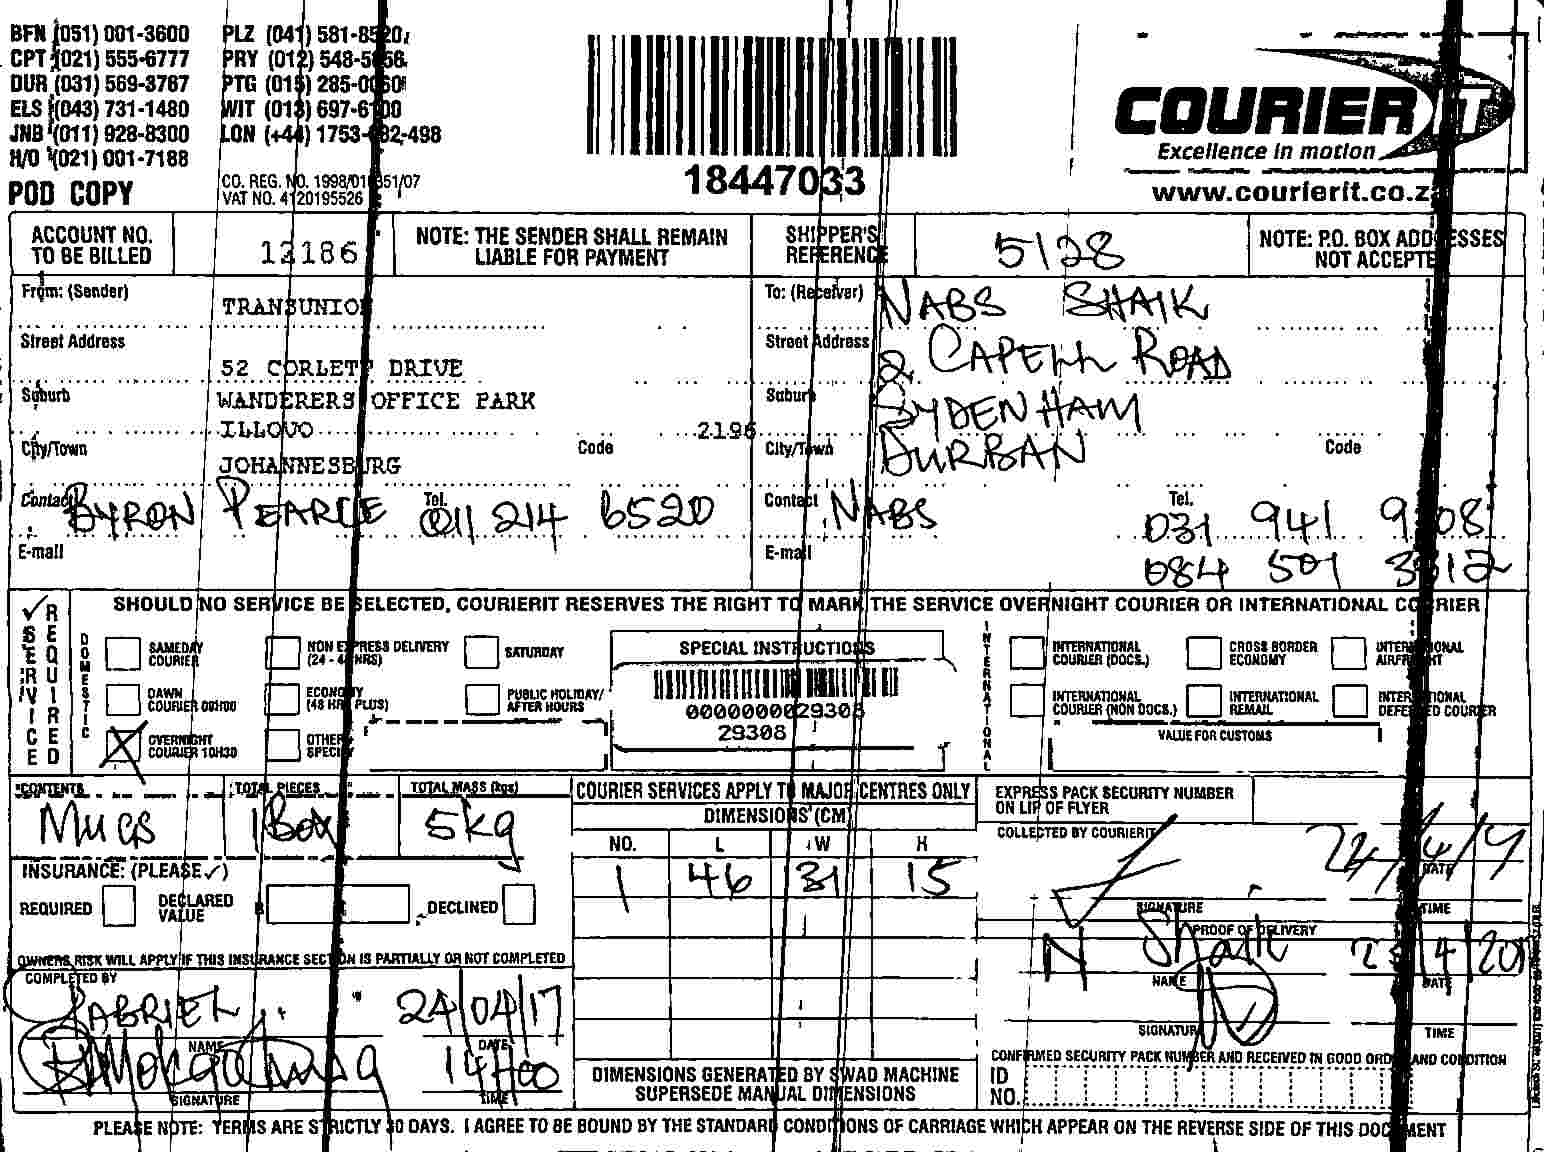 BFN (051) 001-3600 PLZ (041) 581-8520
CPT (021) 555-6777 PRY (012) 548-5
DUR (031) 569-3767 PTG (015) 285-0
ELS (043) 731-1480 WIT (013) 697-6
JNB (011) 928-8300 LON (+44) 1753- 2-498
H/O (021) 001-7188
POD COPY
CO. REG. NO. 1998/01 351/07
VAT NO. 4120195526
18447033
COURIER IT
Excellence in motion
www.courierit.co.z
ACCOUNT NO. TO BE BILLED
13186
NOTE: THE SENDER SHALL REMAIN LIABLE FOR PAYMENT
SHIPPER'S REFERENCE
5128
NOTE: P.O. BOX ADDRESSES NOT ACCEPTE
From: (Sender)
TRANSUNION
Street Address
52 CORLETT DRIVE
Suburb
WANDERERS OFFICE PARK
ILLOVO
City/Town
JOHANNESBURG
Code 2196
Contact BYRON PEARCE Tel. 011 214 6520
E-mail
To: (Receiver) NABS SHAIK
Street Address 2 CAPELL ROAD
Suburb SYDENHAM
City/Town DURBAN Code
Contact NABS Tel. 031 941 9 08
E-mail 084 501 3 12
SERVICE REQUIRED
SHOULD NO SERVICE BE SELECTED, COURIERIT RESERVES THE RIGHT TO MARK THE SERVICE OVERNIGHT COURIER OR INTERNATIONAL COURIER
DOMESTIC
SAMEDAY COURIER
NON EXPRESS DELIVERY (24 - 48 HRS)
SATURDAY
DAWN COURIER 09H00
ECONOMY (48 HR PLUS)
PUBLIC HOLIDAY/ AFTER HOURS
X OVERNIGHT COURIER 10H30
OTHER SPECIFY
SPECIAL INSTRUCTIONS
0000000029308
29308
INTERNATIONAL
INTERNATIONAL COURIER (DOCS.)
CROSS BORDER ECONOMY
INTERNATIONAL AIRFREIGHT
INTERNATIONAL COURIER (NON DOCS.)
INTERNATIONAL REMAIL
INTERNATIONAL DEFERRED COURIER
VALUE FOR CUSTOMS
CONTENTS
MUGS
TOTAL PIECES
1 Box
TOTAL MASS (kgs)
5kg
COURIER SERVICES APPLY TO MAJOR CENTRES ONLY
DIMENSIONS (CM)
NO. L W H
1 46 31 15
EXPRESS PACK SECURITY NUMBER ON LIP OF FLYER
COLLECTED BY COURIERIT
24/4/
DATE
SIGNATURE TIME
PROOF OF DELIVERY
N Shaik 2 /4/201
NAME DATE
SIGNATURE TIME
INSURANCE: (PLEASE ✓)
REQUIRED DECLARED VALUE R DECLINED
OWNERS RISK WILL APPLY IF THIS INSURANCE SECTION IS PARTIALLY OR NOT COMPLETED
COMPLETED BY
GABRIEL 24/04/17
NAME DATE
14H00
SIGNATURE TIME
DIMENSIONS GENERATED BY SWAD MACHINE SUPERSEDE MANUAL DIMENSIONS
CONFIRMED SECURITY PACK NUMBER AND RECEIVED IN GOOD ORDER AND CONDITION
ID NO.
PLEASE NOTE: TERMS ARE STRICTLY 30 DAYS. I AGREE TO BE BOUND BY THE STANDARD CONDITIONS OF CARRIAGE WHICH APPEAR ON THE REVERSE SIDE OF THIS DOCUMENT